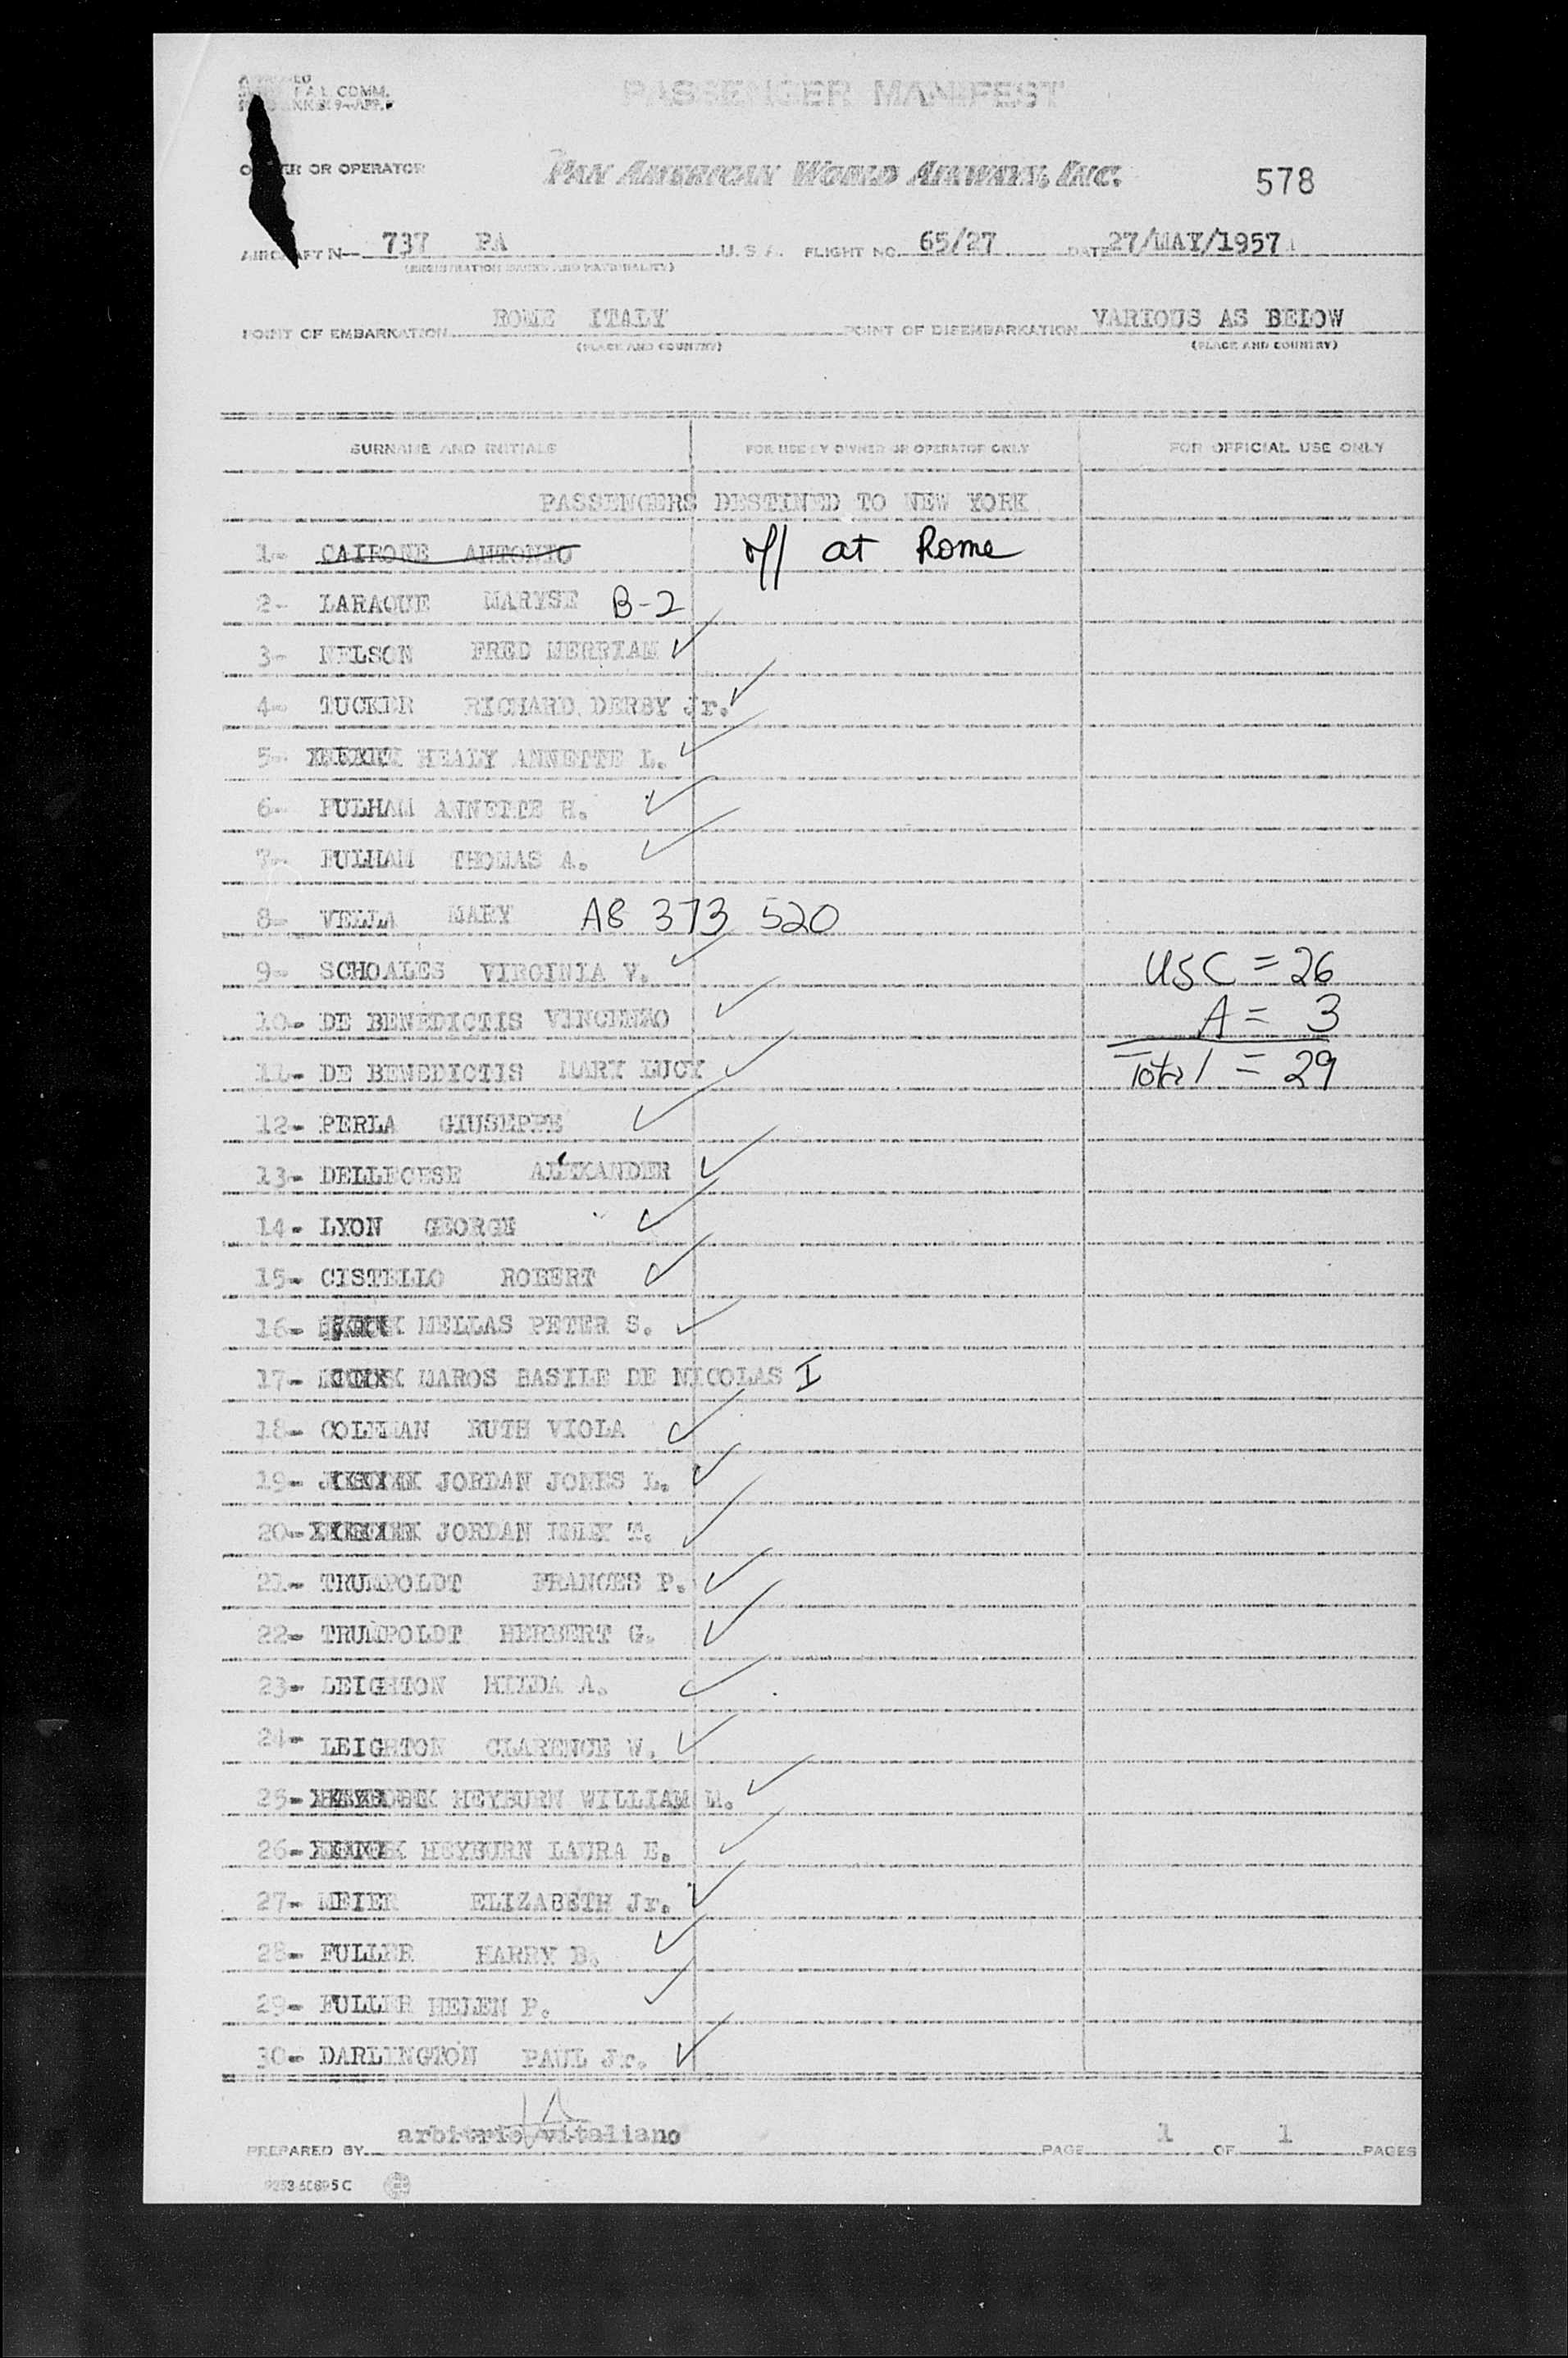 PASSENGER MANIFEST
F.A.L. COMM.
OR OPERATOR PAN AMERICAN WORLD AIRWAYS, INC. 578
AIRCRAFT N— 737 PA U.S.A. FLIGHT NO. 65/27 DATE 27/MAY/1957
(REGISTRATION MARKS AND NATIONALITY)
POINT OF EMBARKATION ROME ITALY POINT OF DISEMBARKATION VARIOUS AS BELOW
(PLACE AND COUNTRY) (PLACE AND COUNTRY)
SURNAME AND INITIALS FOR USE BY OWNER OR OPERATOR ONLY FOR OFFICIAL USE ONLY
PASSENGERS DESTINED TO NEW YORK
1- CAIRONE ANTONIO off at Rome
2- LARAQUE MARYSE B-2
3- NELSON FRED MERRIAM ✓
4- TUCKER RICHARD DERBY Jr. ✓
5- HEALY ANNETTE L. ✓
6- FULHAM ANNETTE H. ✓
7- FULHAM THOMAS A. ✓
8- VELLA MARY A8 373 520
9- SCHOALES VIRGINIA V. ✓ USC = 26
10- DE BENEDICTIS VINCENZO ✓ A = 3
11- DE BENEDICTIS MARY LUCY ✓ Total = 29
12- PERLA GIUSEPPE ✓
13- ALEXANDER ✓
14- LYON GEORGE ✓
15- CISTELLO ROBERT ✓
16- MELLAS PETER S. ✓
17- MAROS BASILE DE NICOLAS I
18- COLEMAN RUTH VIOLA ✓
19- JORDAN JONES L. ✓
20- JORDAN T. ✓
21- TRUMPOLDT FRANCES P. ✓
22- TRUMPOLDT HERBERT G. ✓
23- LEIGHTON HILDA A. ✓
24- LEIGHTON CLARENCE W. ✓
25- HEYBURN WILLIAM M. ✓
26- HEYBURN LAURA E. ✓
27- MEIER ELIZABETH Jr. ✓
28- FULLER HARRY B. ✓
29- FULLER HELEN P. ✓
30- DARLINGTON PAUL Jr. ✓
PREPARED BY arbitrio vitaliano PAGE 1 OF 1 PAGES